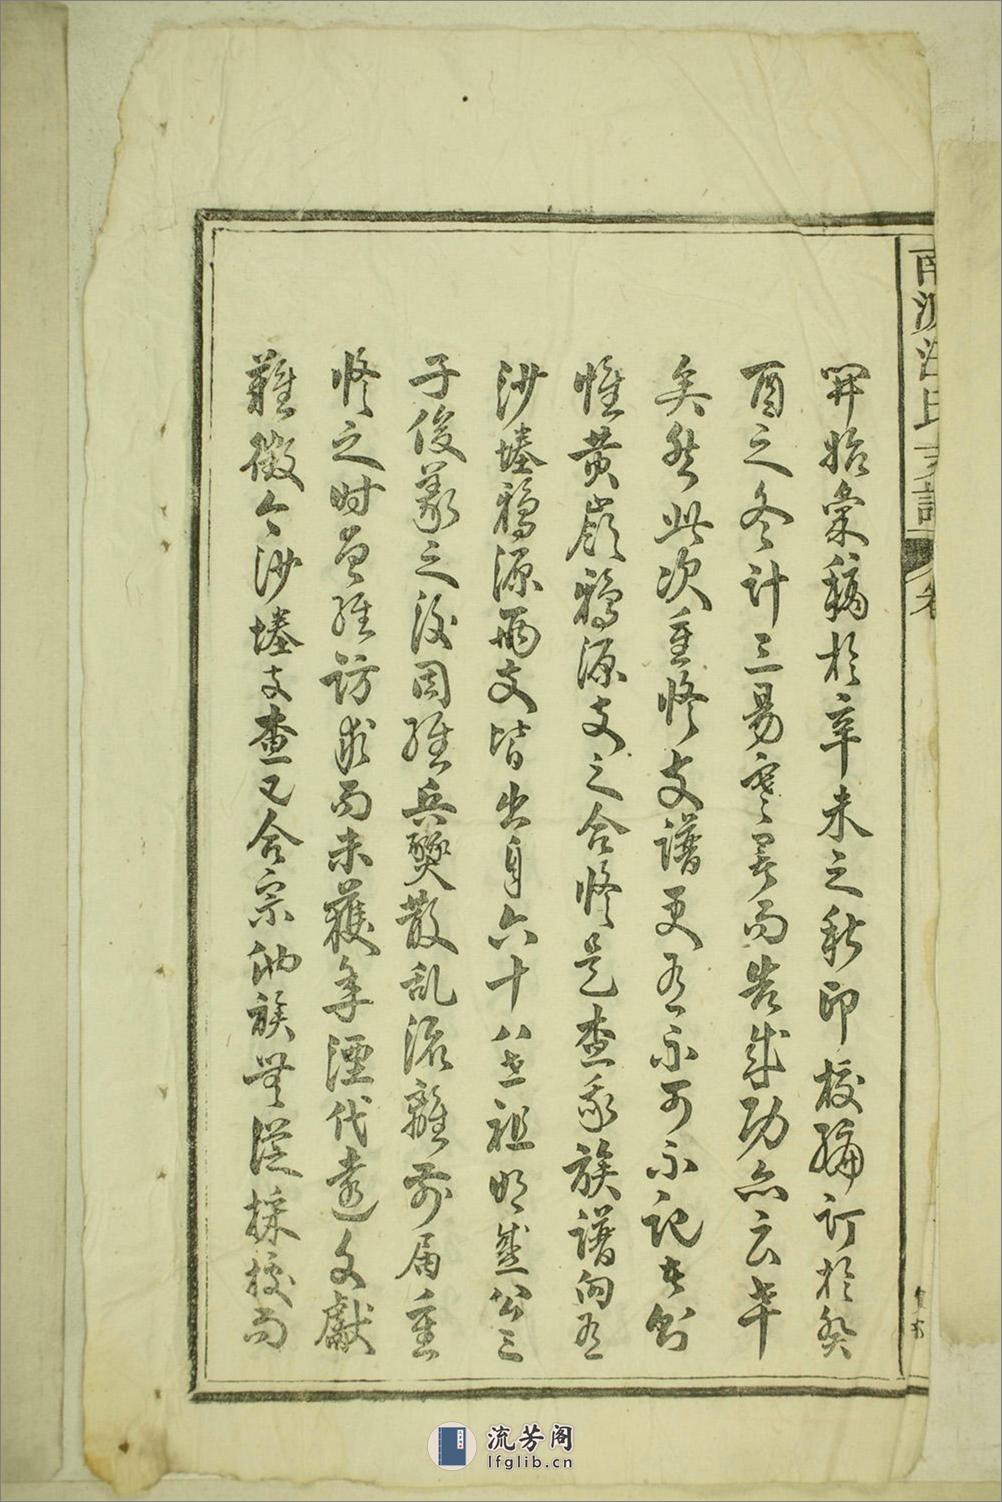 開始彙稿於辛未之秋印校編訂於癸
酉之冬計三易寒暑而告成功亦云幸
矣然此次重修支譜更有不可不記者則
惟黄嶺鴉源支之合修是查我族譜向有
沙塝鴉源兩支皆出自六十八世祖明盛公三
子俊義之後因經兵燹散乱流離前届重
修之时曾經訪求而未獲年湮代遠文獻
難徵今沙塝支查已合宗他族無從採校而
氏支譜
流芳阁
lfglib.cn